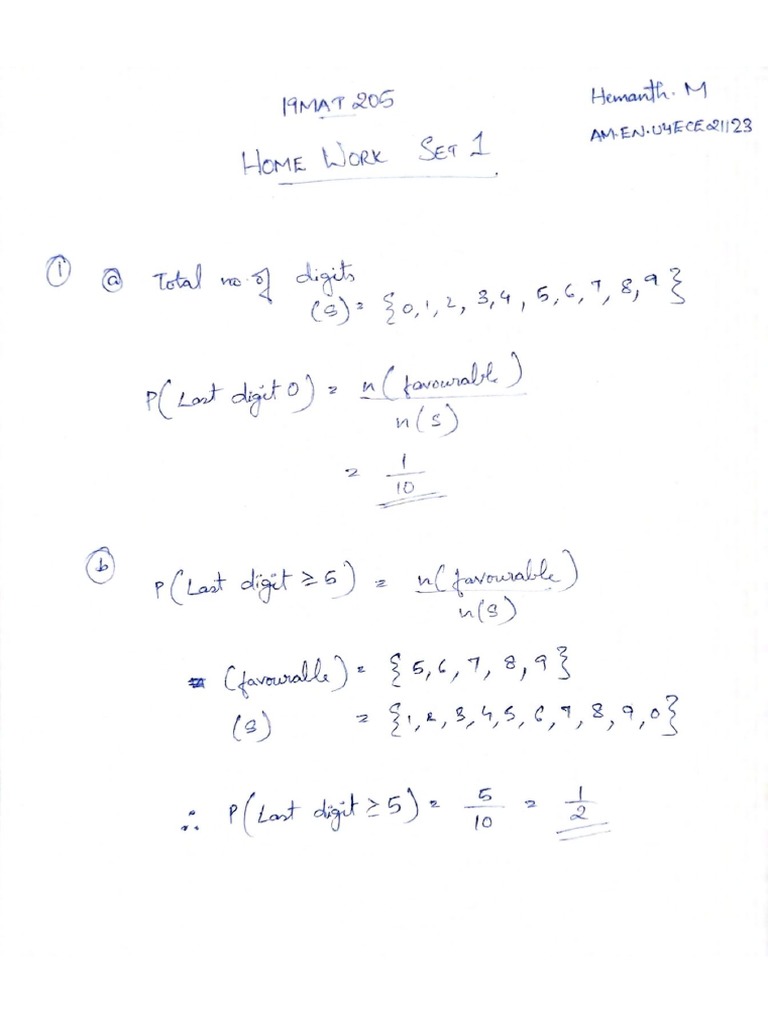 19MAT205
Hemanth. M
AM.EN.U4ECE21123
HOME WORK SET 1
① ⓐ Total no. of digits
(S) = {0,1,2, 3,4, 5,6,7,8,9}
P(Last digit 0) = n(favourable)
n(S)
= 1
10
ⓑ P(Last digit ≥ 5) = n(favourable)
n(S)
(favourable) = {5,6,7,8,9}
(S) = {1,2,3,4,5,6,7,8,9,0}
∴ P(Last digit ≥ 5) = 5 = 1
10 2